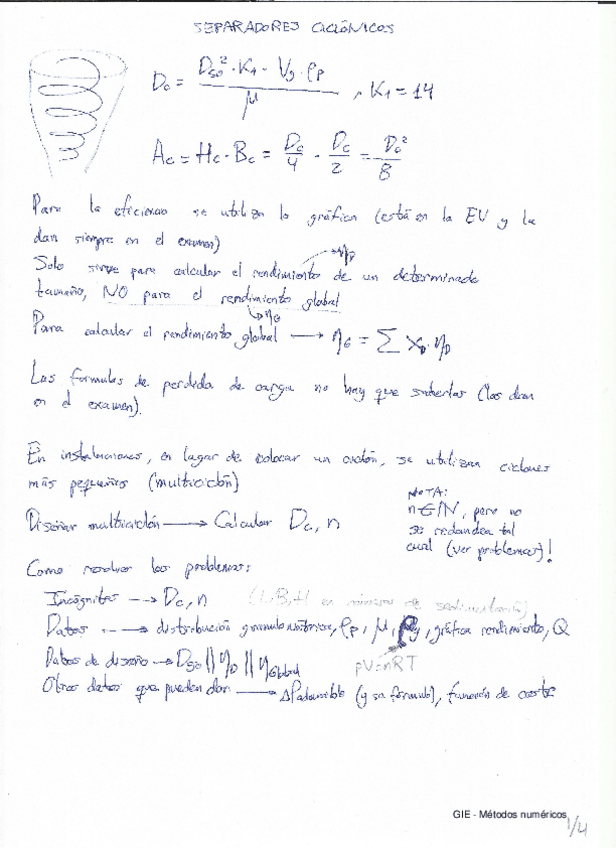 SEPARADORES CICLÓNICOS
Dc = D50² · K1 · Vg · ρp / μ , K1 = 14
Ac = Hc · Bc = Dc/4 · Dc/2 = Dc²/8
Para la eficiencia se utiliza la gráfica (está en la EV y la
dan siempre en el examen)
→ηD
Solo sirve para calcular el rendimiento de un determinado
tamaño, NO para el rendimiento global
↳ηG
Para calcular el rendimiento global → ηG = Σ XD · ηD
Las formulas de perdida de carga no hay que saberlas (las dan
en el examen).
En instalaciones, en lugar de colocar un ciclón, se utilizan ciclones
más pequeños (multiciclón)
Diseñar multiciclón → Calcular Dc, n
NOTA:
n∈ℕ, pero no
se redondea tal
cual (ver problemas)!
Como resolver los problemas:
Incógnitas → Dc, n (L,B,H en cámaras de sedimentación)
Datos → distribución granulométrica, ρp, μ, ρg, gráfica rendimiento, Q
pV=nRT
Datos de diseño → D50 || ηD || ηGlobal
Otros datos que pueden dar → ΔPadmisible (y su formula), función de coste
GIE - Métodos numéricos
1/4